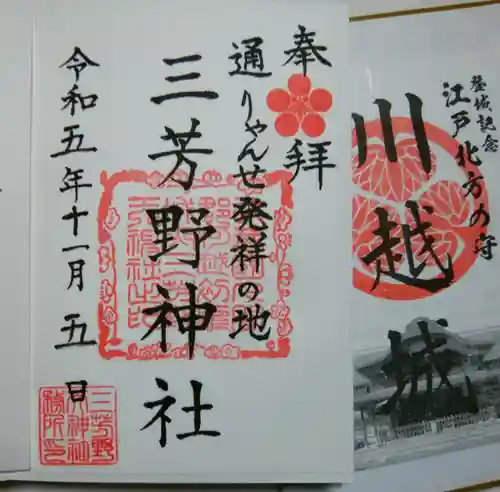 奉拝
通りゃんせ発祥の地
三芳野神社
令和五年十一月五日
三芳野
神社
務所印
登城記念
江戸北方の守
川越城